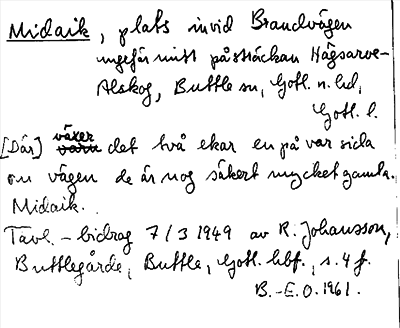 Midaik, plats invid Brandvägen
ungefär mitt på sträckan Hägsarve-
Alskog, Buttle sn, Gotl. n. hd,
Gotl. l.
[Där] växer det två ekar en på var sida
om vägen de är nog säkert mycket gamla.
Midaik.
Tävl.-bidrag 7/3 1949 av R. Johansson,
Buttlegårde, Buttle, Gotl. hbf., s. 4 f.
B.-E.O. 1961.